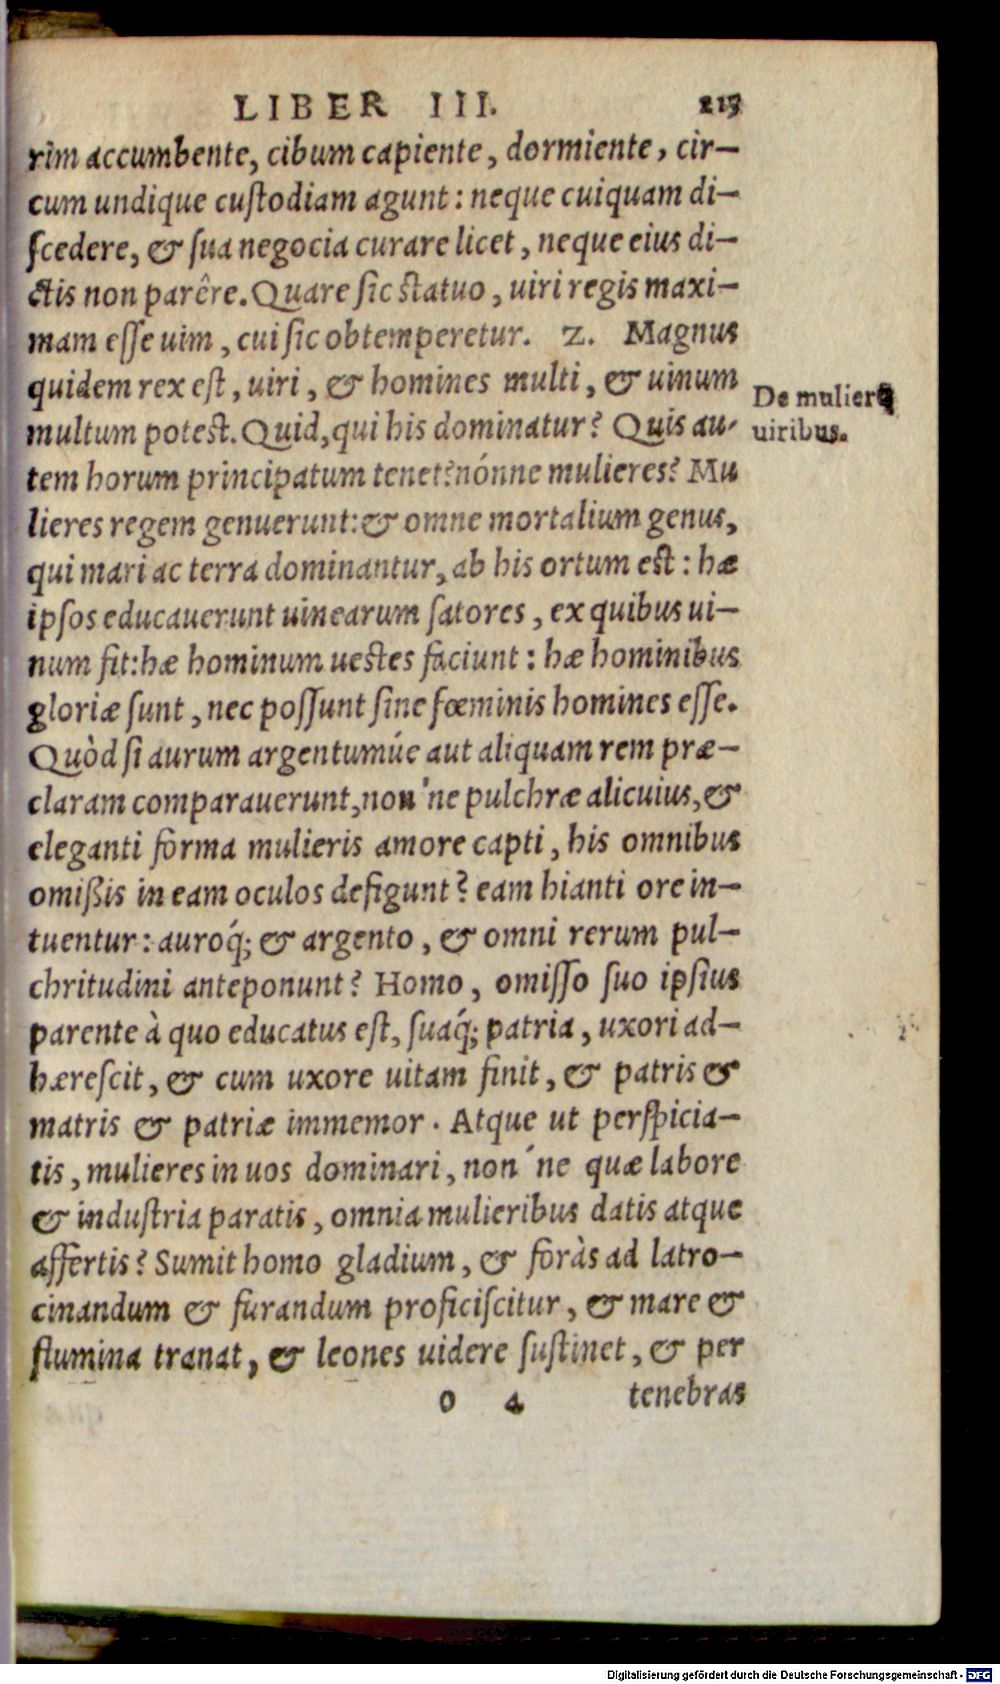 LIBER III. 215
rim accumbente, cibum capiente, dormiente, cir-
cum undique custodiam agunt: neque cuiquam di-
scedere, & sua negocia curare licet, neque eius di-
ctis non parêre. Quare sic statuo, uiri regis maxi-
mam esse uim, cui sic obtemperetur. 2. Magnus
quidem rex est, uiri, & homines multi, & uinum
multum potest. Quid, qui his dominatur? Quis au-
tem horum principatum tenet? nónne mulieres? Mu
lieres regem genuerunt: & omne mortalium genus,
qui mari ac terra dominantur, ab his ortum est: hæ
ipsos educauerunt uinearum satores, ex quibus ui-
num fit: hæ hominum uestes faciunt: hæ hominibus
gloriæ sunt, nec possunt sine fœminis homines esse.
Quòd si aurum argentumúe aut aliquam rem præ-
claram comparauerunt, non'ne pulchræ alicuius, &
eleganti forma mulieris amore capti, his omnibus
omißis in eam oculos defigunt? eam hianti ore in-
tuentur: auroq́; & argento, & omni rerum pul-
chritudini anteponunt? Homo, omisso suo ipsius
parente à quo educatus est, suaq́; patria, uxori ad-
hærescit, & cum uxore uitam finit, & patris &
matris & patriæ immemor. Atque ut perspicia-
tis, mulieres in uos dominari, non'ne quæ labore
& industria paratis, omnia mulieribus datis atque
affertis? Sumit homo gladium, & foràs ad latro-
cinandum & furandum proficiscitur, & mare &
flumina tranat, & leones uidere sustinet, & per
o 4 tenebras
De mulierū
uiribus.
Digitalisierung gefördert durch die Deutsche Forschungsgemeinschaft - DFG